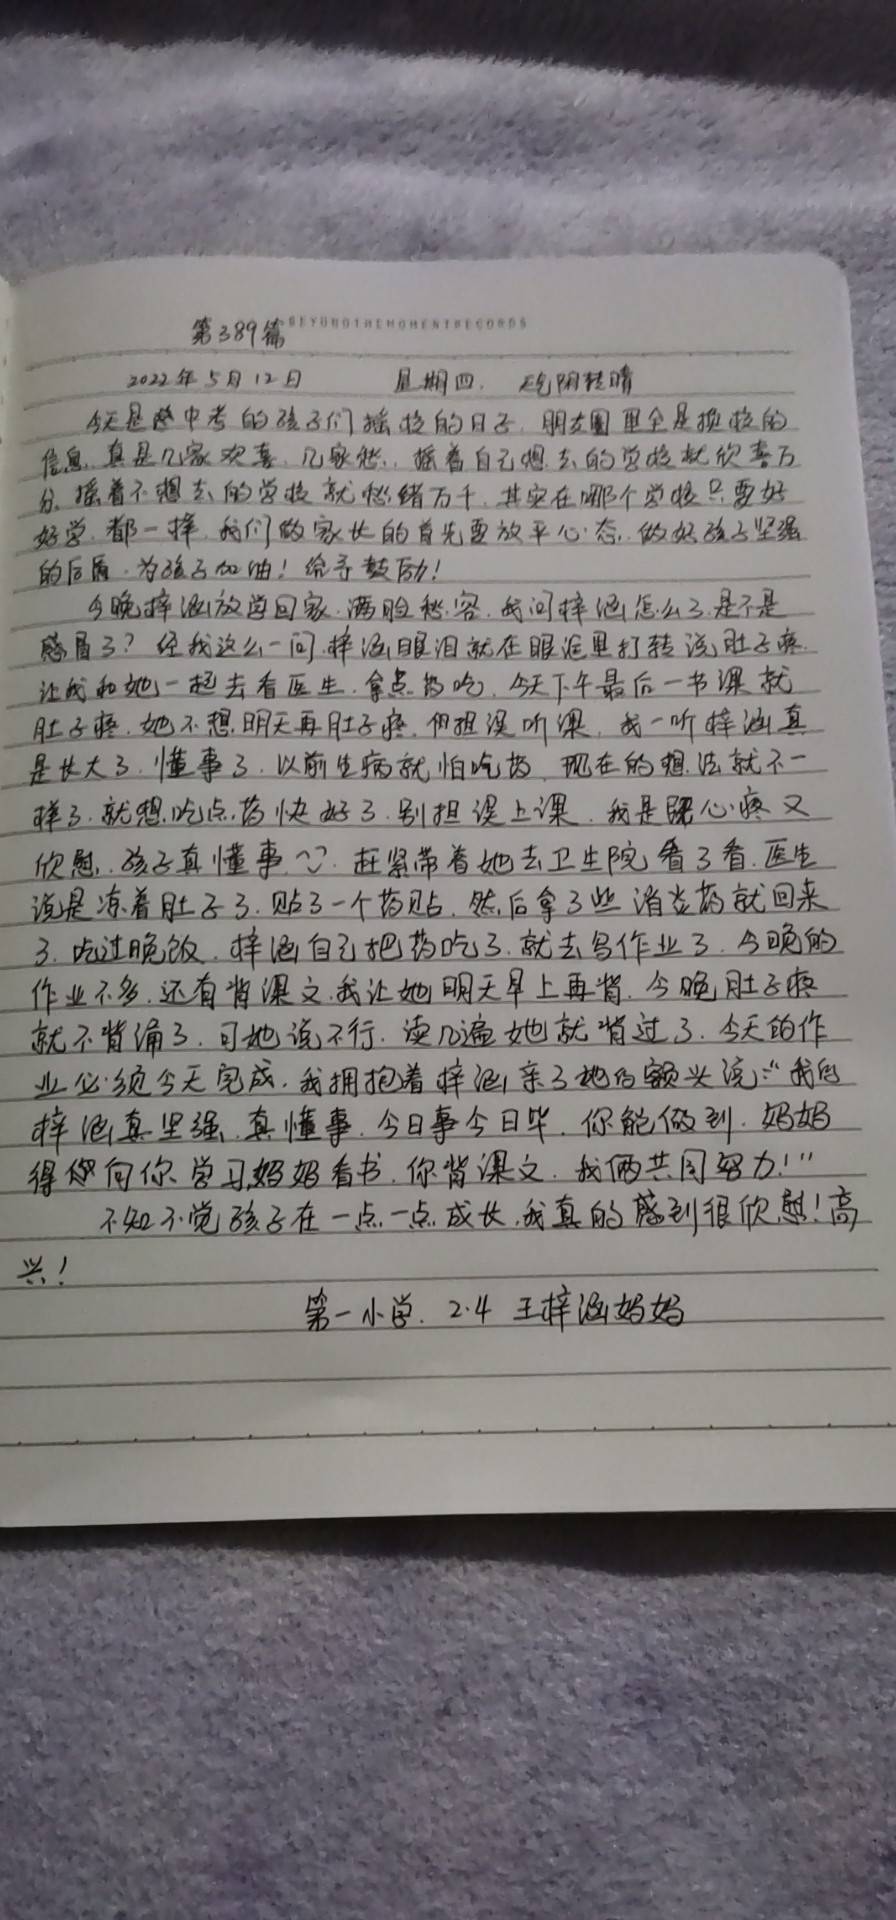 BEYONDTHEMOMENTRECORDS
第389篇
2022年5月12日 星期四. 天气阴转晴
今天是 中考的孩子们摇校的日子.朋友圈里全是摇校的
信息.真是几家欢喜.几家愁..摇着自己想去的学校就欣喜万
分.摇着不想去的学校就愁绪万千.其实在哪个学校只要好
好学.都一样.我们做家长的首先要放平心态.做好孩子坚强
的后盾.为孩子加油!给予鼓励!
今晚梓涵放学回家.满脸愁容.我问梓涵怎么了.是不是
感冒了?经我这么一问.梓涵眼泪就在眼眶里打转说肚子疼.
让我和她一起去看医生.拿点药吃.今天下午最后一节课就
肚子疼.她不想明天再肚子疼.但担误听课.我一听梓涵真
是长大了.懂事了.以前生病就怕吃药.现在的想法就不一
样了.就想吃点药快好了.别担误上课.我是 心疼又
欣慰.孩子真懂事.赶紧带着她去卫生院看了看.医生
说是凉着肚子了.贴了一个药贴.然后拿了些消炎药就回来
了.吃过晚饭.梓涵自己把药吃了.就去写作业了.今晚的
作业不多.还有背课文.我让她明天早上再背.今晚肚子疼
就不背诵了.可她说不行.读几遍她就背过了.今天的作
业必须今天完成.我拥抱着梓涵亲了她的额头说:"我的
梓涵真坚强.真懂事.今日事今日毕.你能做到.妈妈
得向你学习.妈妈看书.你背课文.我俩共同努力!"
不知不觉孩子在一点一点成长.我真的感到很欣慰!高
兴!
第一小学. 2.4 王梓涵妈妈